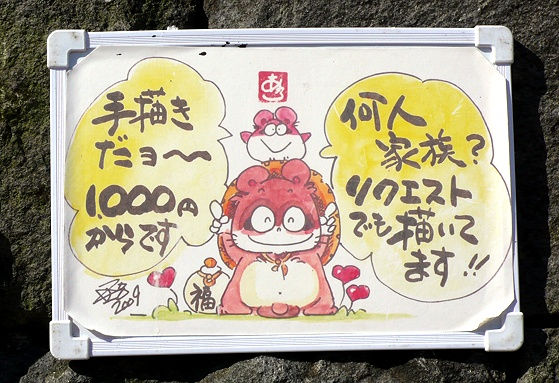 何人
家族?
リクエスト
でも描いて
ます!!
手描き
だョ〜
1,000円
からです
福
2009